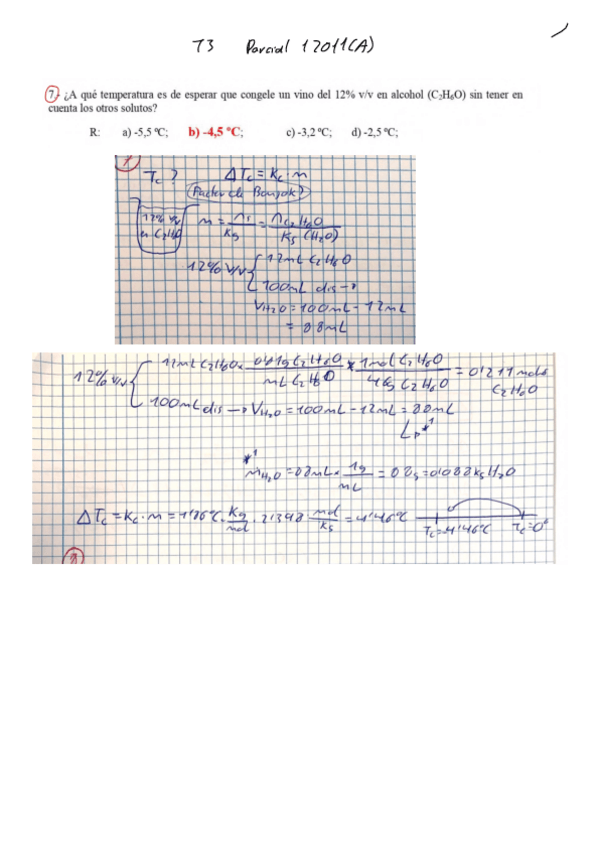 T3 Parcial 1 2011(A)
7.- ¿A qué temperatura es de esperar que congele un vino del 12% v/v en alcohol (C₂H₆O) sin tener en
cuenta los otros solutos?
R: a) -5,5 ºC; b) -4,5 ºC; c) -3,2 ºC; d) -2,5 ºC;
7
Tc? ΔTc = Kc · m
(Factor de Van't
12% v/v
en C₂H₆O
m = ns/Kg = nC₂H₆O/Kg (H₂O)
12% v/v { 12mL C₂H₆O
100mL dis →
VH₂O = 100mL - 12mL
= 88mL
12% v/v { 12mL C₂H₆O · 0'81g C₂H₆O/mL C₂H₆O * 1mol C₂H₆O/46g C₂H₆O = 0'211 moles C₂H₆O
100mL dis → VH₂O = 100mL - 12mL = 88mL
↳ *¹
*¹
mH₂O = 88mL · 1g/mL = 88g = 0'088kg H₂O
ΔTc = Kc · m = 1'86ºC · Kg/mol · 2'398 mol/Kg = 4'46ºC
Tc = -4'46ºC Tc = 0º
8